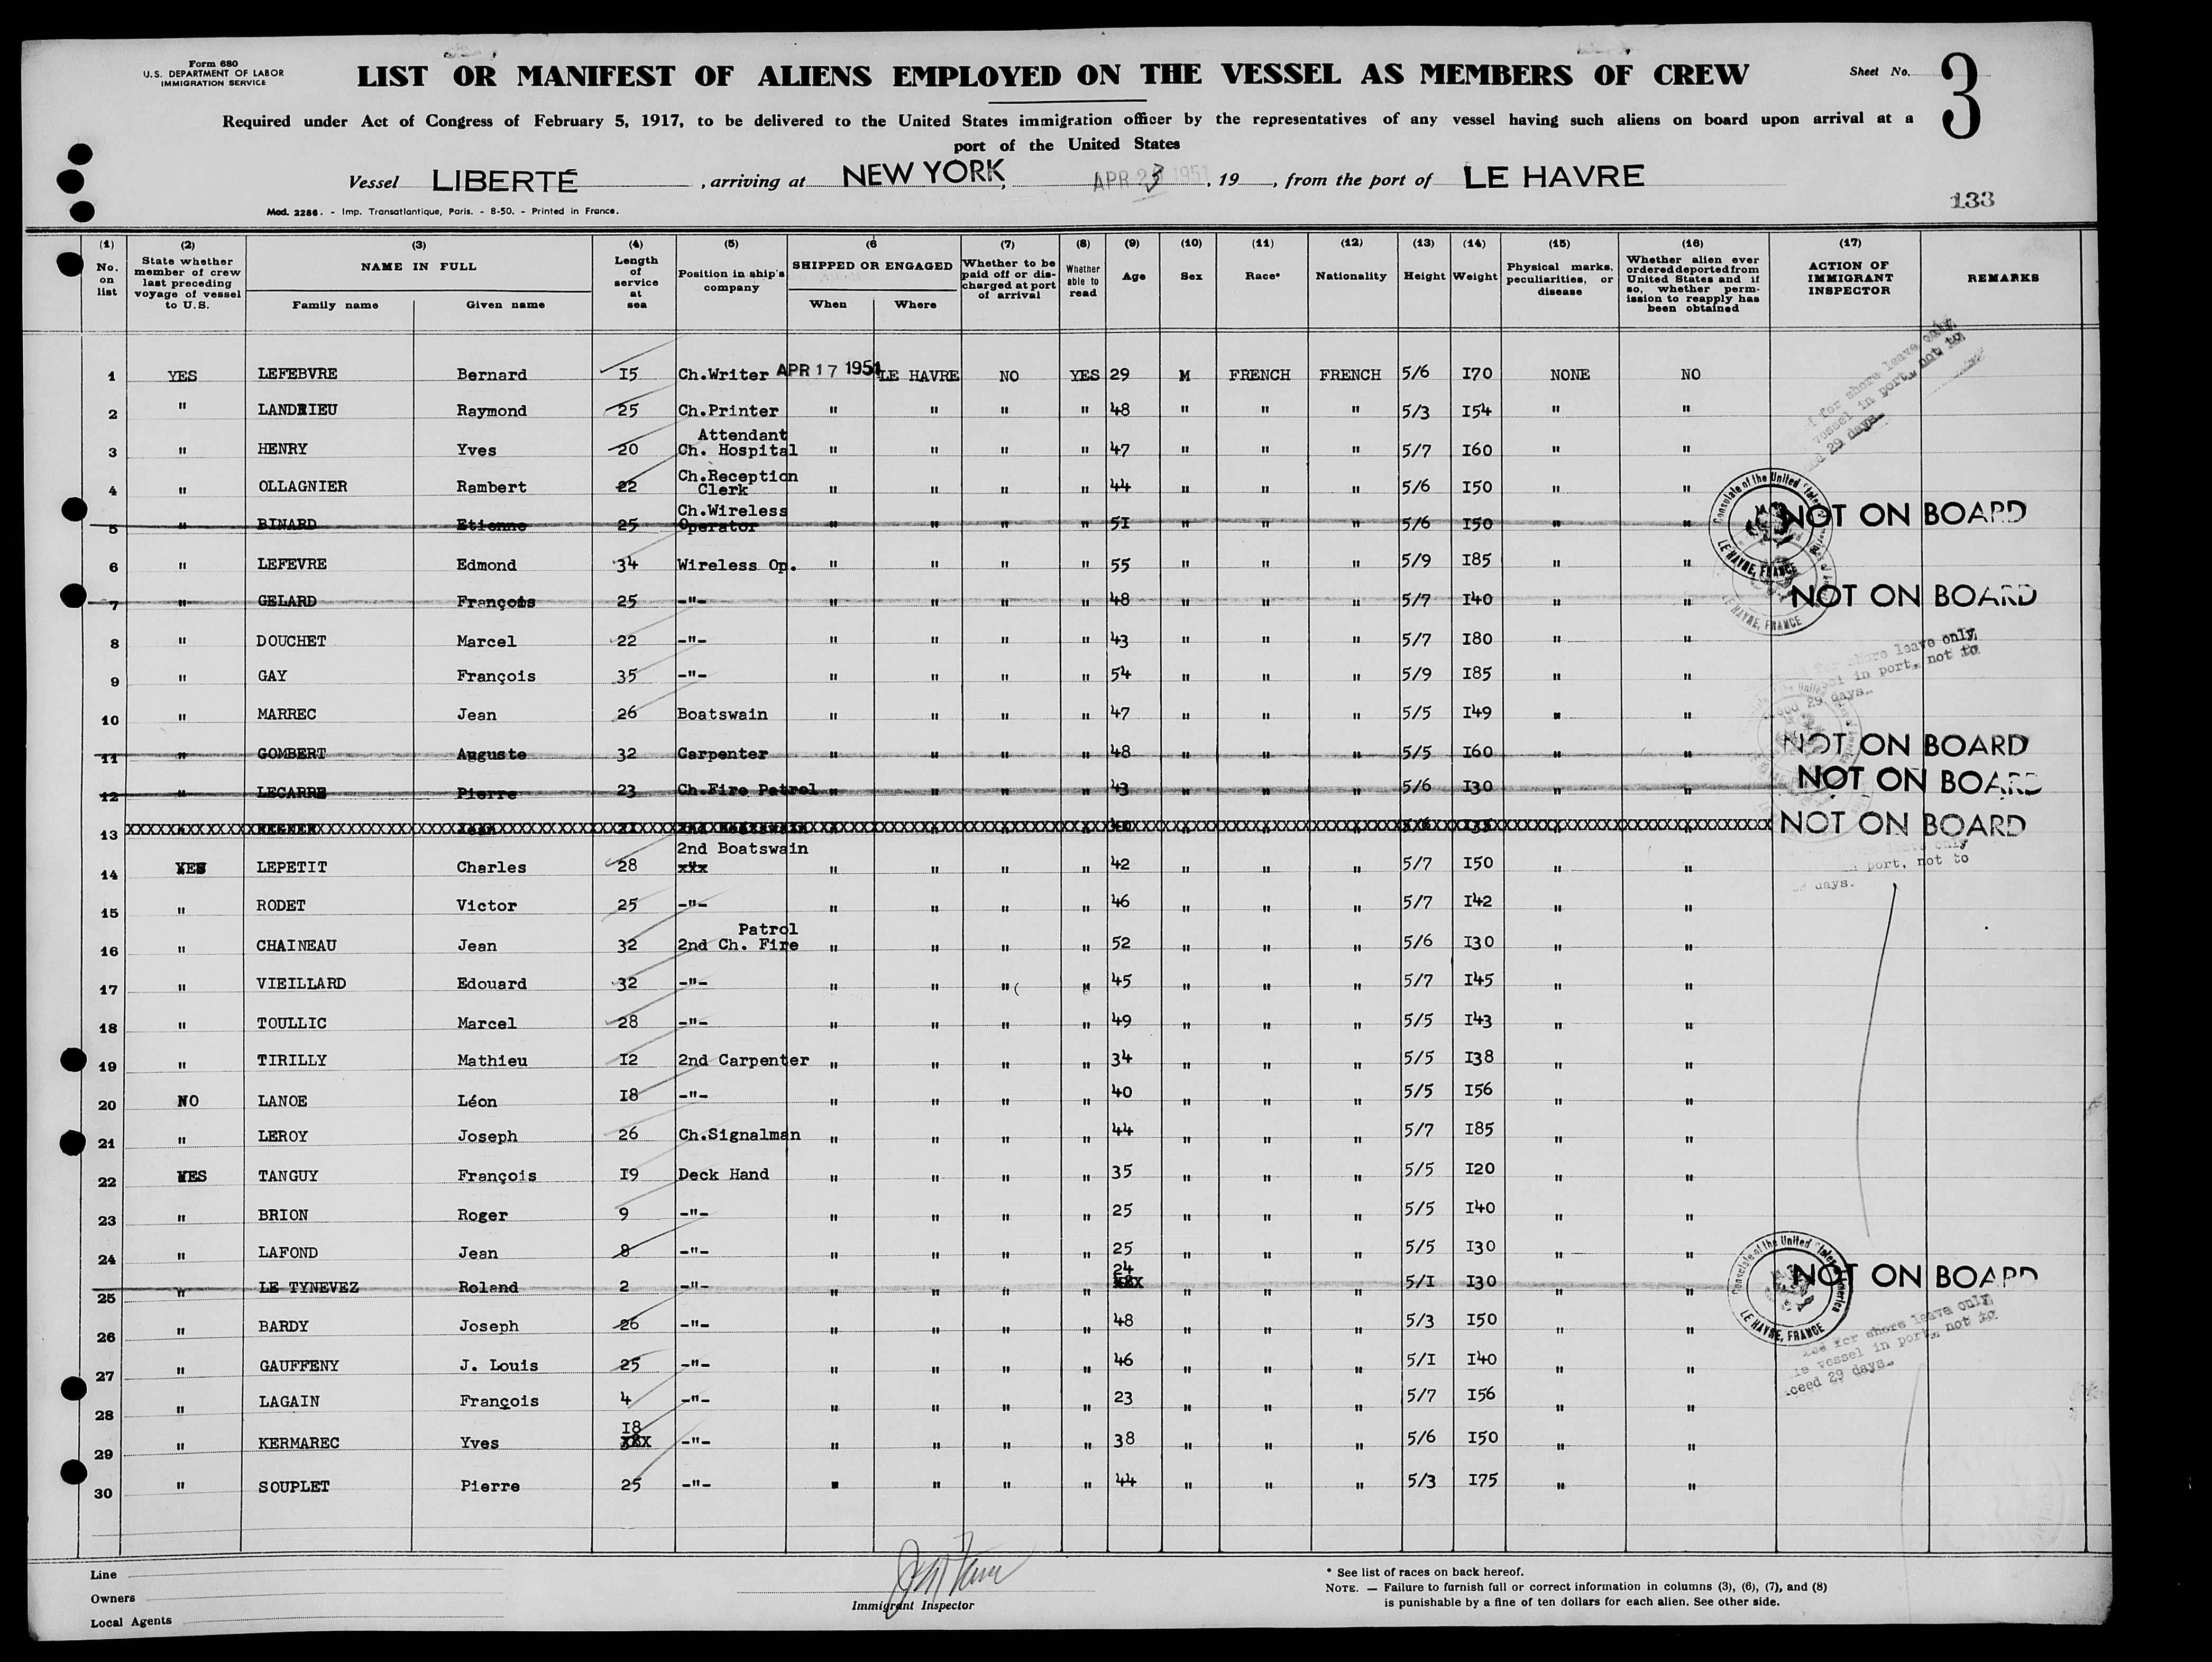 Form 680
U.S. DEPARTMENT OF LABOR
IMMIGRATION SERVICE
LIST OR MANIFEST OF ALIENS EMPLOYED ON THE VESSEL AS MEMBERS OF CREW
Sheet No. 3
Required under Act of Congress of February 5, 1917, to be delivered to the United States immigration officer by the representatives of any vessel having such aliens on board upon arrival at a
port of the United States
Vessel LIBERTÉ, arriving at NEW YORK, APR 23 1951, 19, from the port of LE HAVRE
Mod. 2286. - Imp. Transatlantique, Paris. - 8-50. - Printed in France.
133
(1) (2) (3) (4) (5) (6 (7) (8) (9) (10) (11) (12) (13) (14) (15) (16) (17)
No. on list
State whether member of crew last preceding voyage of vessel to U.S.
NAME IN FULL
Family name Given name
Length of service at sea
Position in ship's company
SHIPPED OR ENGAGED
When Where
Whether to be paid off or discharged at port of arrival
Whether able to read
Age
Sex
Race*
Nationality
Height
Weight
Physical marks, peculiarities, or disease
Whether alien ever ordered deported from United States and if so, whether permission to reapply has been obtained
ACTION OF IMMIGRANT INSPECTOR
REMARKS
1 YES LEFEBVRE Bernard 15 Ch.Writer APR 17 1951 LE HAVRE NO YES 29 M FRENCH FRENCH 5/6 I70 NONE NO
2 " LANDRIEU Raymond 25 Ch.Printer " " " " 48 " " " 5/3 I54 " "
3 " HENRY Yves 20 Attendant Ch. Hospital " " " " 47 " " " 5/7 I60 " "
4 " OLLAGNIER Rambert 22 Ch.Reception Clerk " " " " 44 " " " 5/6 I50 " "
5 " BINARD Etienne 25 Ch.Wireless Operator " " " " 5I " " " 5/6 I50 " " NOT ON BOARD
6 " LEFEVRE Edmond 34 Wireless Op. " " " " 55 " " " 5/9 I85 " "
7 " GELARD François 25 -"- " " " " 48 " " " 5/7 I40 " " NOT ON BOARD
8 " DOUCHET Marcel 22 -"- " " " " 43 " " " 5/7 I80 " "
9 " GAY François 35 -"- " " " " 54 " " " 5/9 I85 " "
10 " MARREC Jean 26 Boatswain " " " " 47 " " " 5/5 I49 " "
11 " GOMBERT Auguste 32 Carpenter " " " " 48 " " " 5/5 I60 " " NOT ON BOARD
12 " LECARRE Pierre 23 Ch.Fire Patrol " " " " 43 " " " 5/6 I30 " " NOT ON BOARD
13 NOT ON BOARD
14 YES LEPETIT Charles 28 2nd Boatswain " " " " 42 " " " 5/7 I50 " "
15 " RODET Victor 25 -"- " " " " 46 " " " 5/7 I42 " "
16 " CHAINEAU Jean 32 Patrol 2nd Ch. Fire " " " " 52 " " " 5/6 I30 " "
17 " VIEILLARD Edouard 32 -"- " " " " 45 " " " 5/7 I45 " "
18 " TOULLIC Marcel 28 -"- " " " " 49 " " " 5/5 I43 " "
19 " TIRILLY Mathieu I2 2nd Carpenter " " " " 34 " " " 5/5 I38 " "
20 NO LANOE Léon I8 -"- " " " " 40 " " " 5/5 I56 " "
21 " LEROY Joseph 26 Ch.Signalman " " " " 44 " " " 5/7 I85 " "
22 YES TANGUY François I9 Deck Hand " " " " 35 " " " 5/5 I20 " "
23 " BRION Roger 9 -"- " " " " 25 " " " 5/5 I40 " "
24 " LAFOND Jean 8 -"- " " " " 25 " " " 5/5 I30 " "
25 " LE TYNEVEZ Roland 2 -"- " " " " 24 " " " 5/I I30 " " NOT ON BOARD
26 " BARDY Joseph 26 -"- " " " " 48 " " " 5/3 I50 " "
27 " GAUFFENY J. Louis 25 -"- " " " " 46 " " " 5/I I40 " "
28 " LAGAIN François 4 -"- " " " " 23 " " " 5/7 I56 " "
29 " KERMAREC Yves I8 -"- " " " " 38 " " " 5/6 I50 " "
30 " SOUPLET Pierre 25 -"- " " " " 44 " " " 5/3 I75 " "
for shore leave only,
vessel in port, not to
29 days.
Consulate of the United States of America
LE HAVRE, FRANCE
LE HAVRE, FRANCE
for shore leave only,
in port, not to
29 days.
leave only
in port, not to
days.
Consulate of the United States of America
LE HAVRE, FRANCE
for shore leave only,
vessel in port, not to
29 days.
Line
Owners
Local Agents
Immigrant Inspector
* See list of races on back hereof.
NOTE. — Failure to furnish full or correct information in columns (3), (6), (7), and (8)
is punishable by a fine of ten dollars for each alien. See other side.